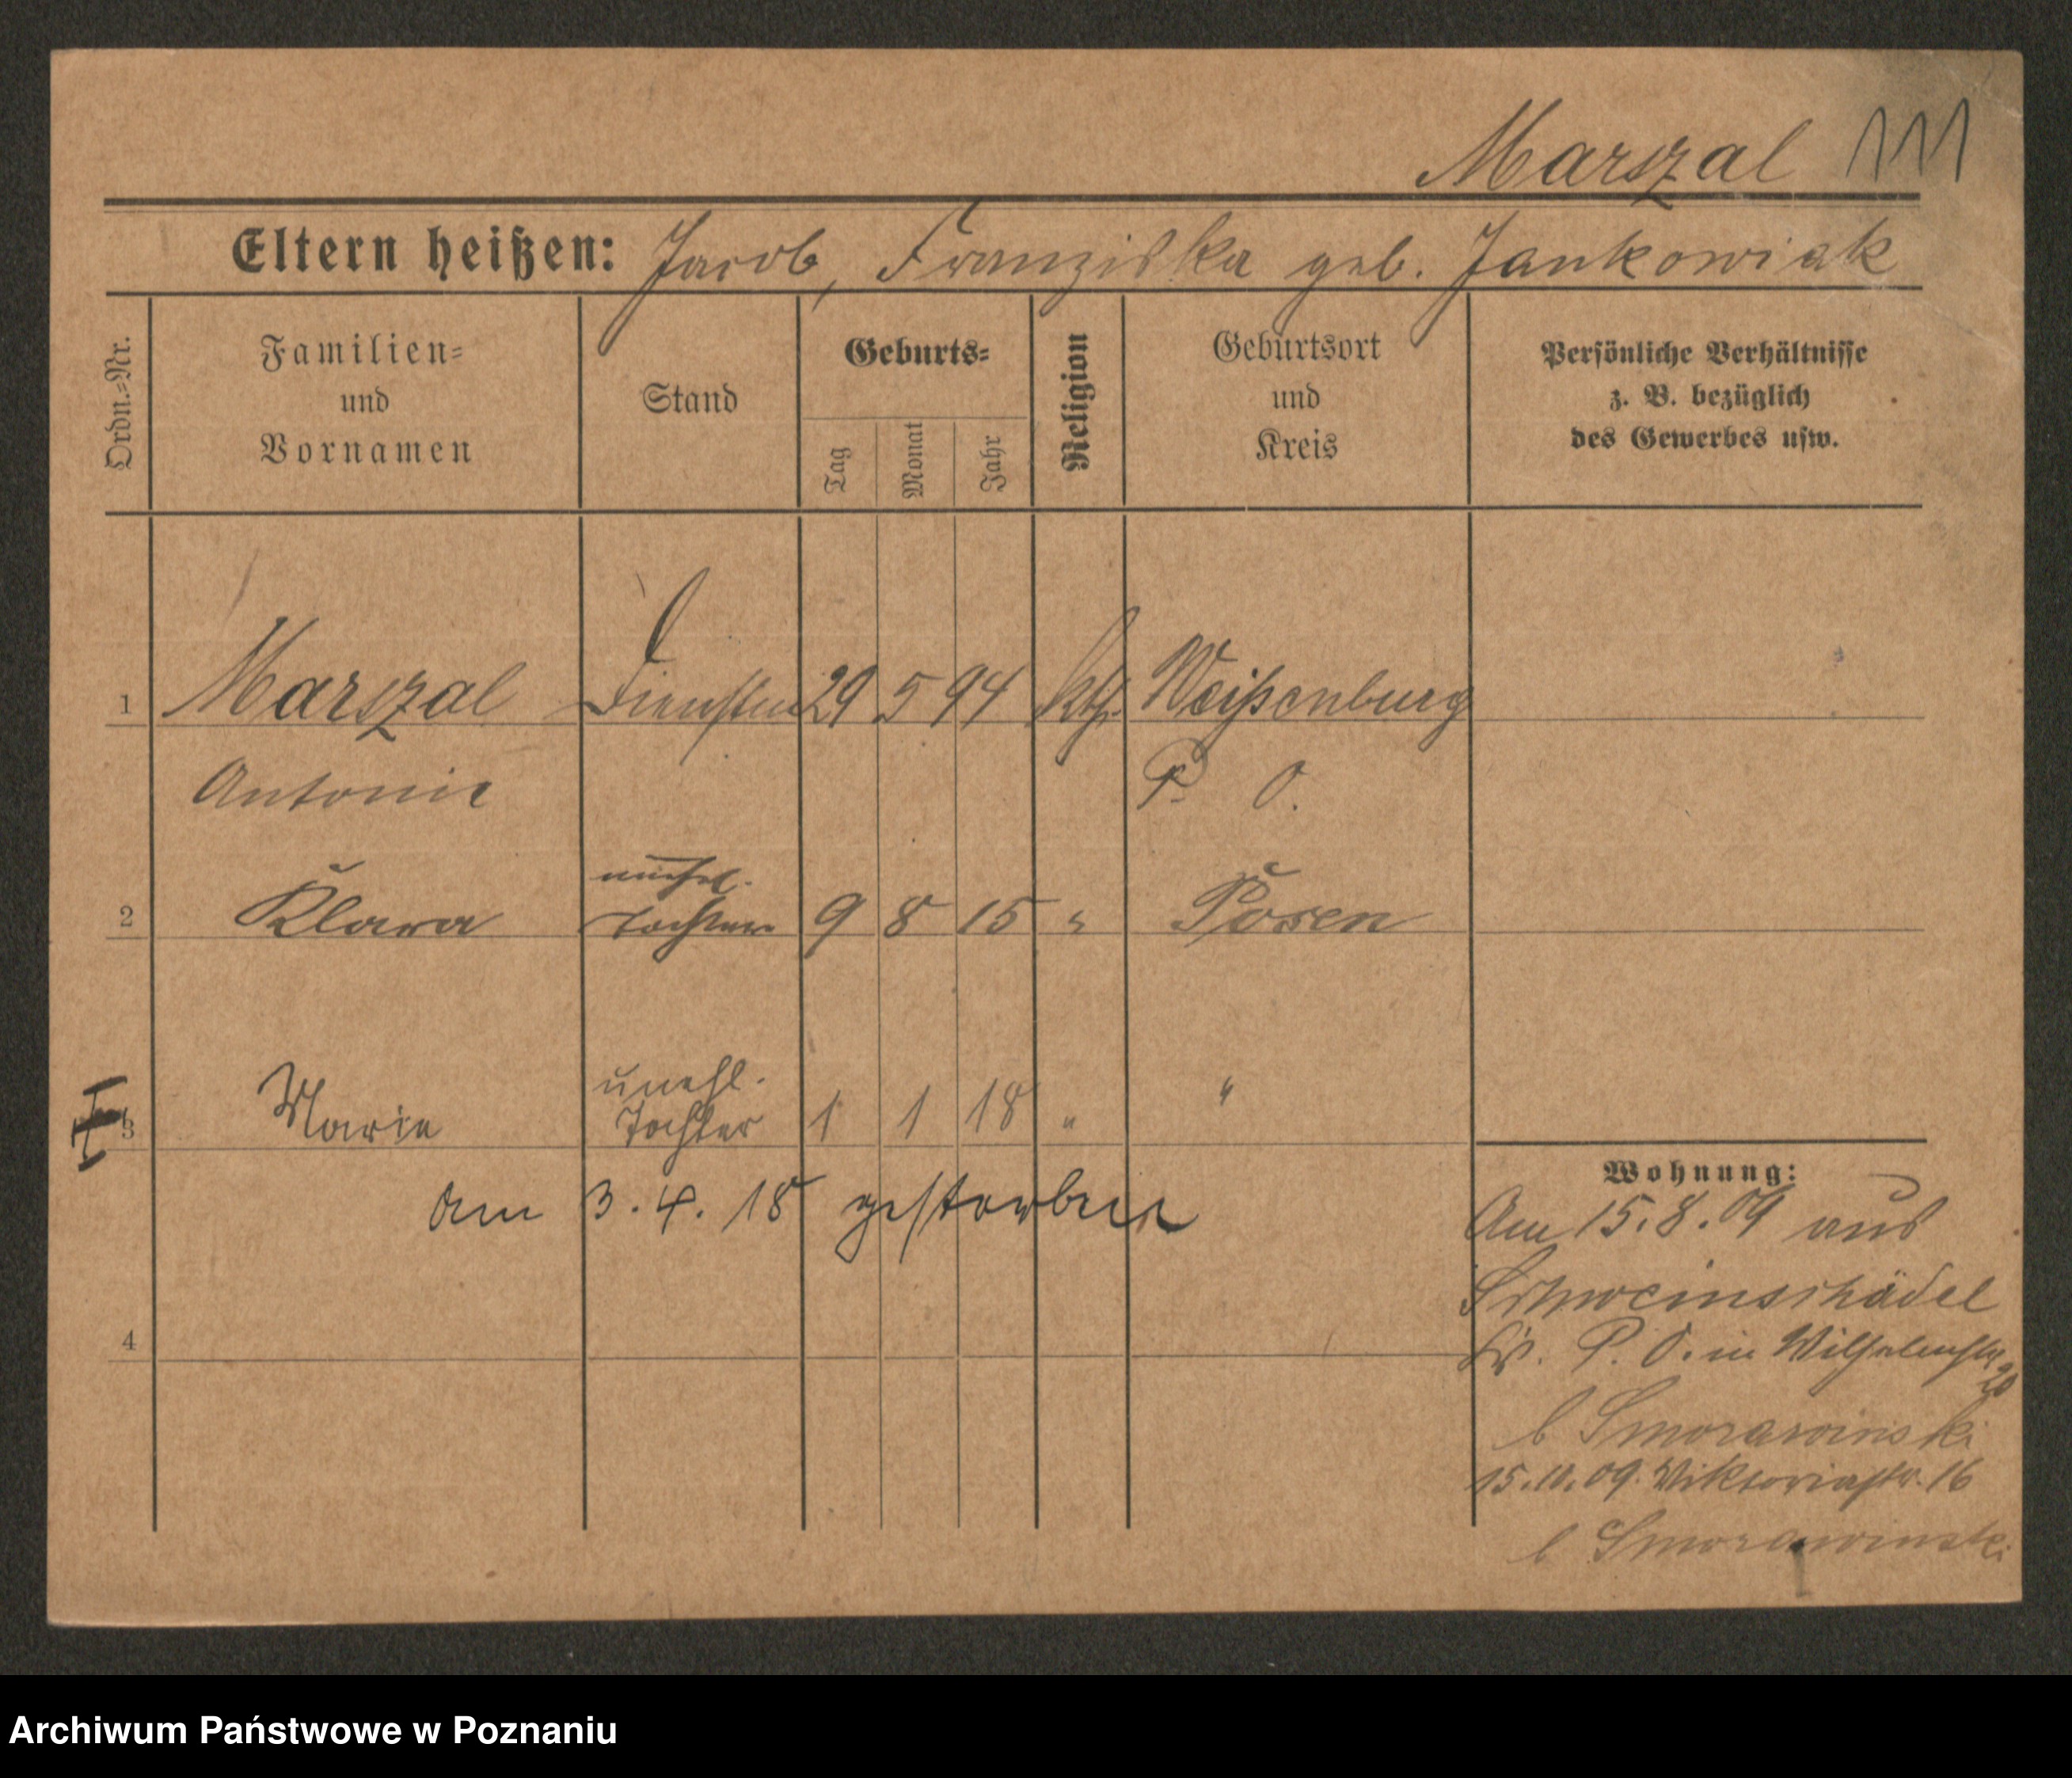 Marszal 111
Eltern heißen: Jacob, Franziska geb. Jankowiak
Ordn.-Nr.
Familien-
und
Vornamen
Stand
Geburts-
Tag
Monat
Jahr
Religion
Geburtsort
und
Kreis
Persönliche Verhältnisse
z. B. bezüglich
des Gewerbes usw.
1 Marszal 29 5 94 kth. Weißenburg
Antonie P. O.
unehel.
2 Klara Tochter 9 8 15 " Posen
unehl.
3 Maria Tochter 1 1 18 " "
am 3. 4. 18 gestorben
4
Wohnung:
Am 15.8.09 aus
Schweinschädel
Kr. P. O. in Wilhelmstr 20
b Smorawinski
15.10.09. Viktoriastr. 16
b Smorawinski
Archiwum Państwowe w Poznaniu